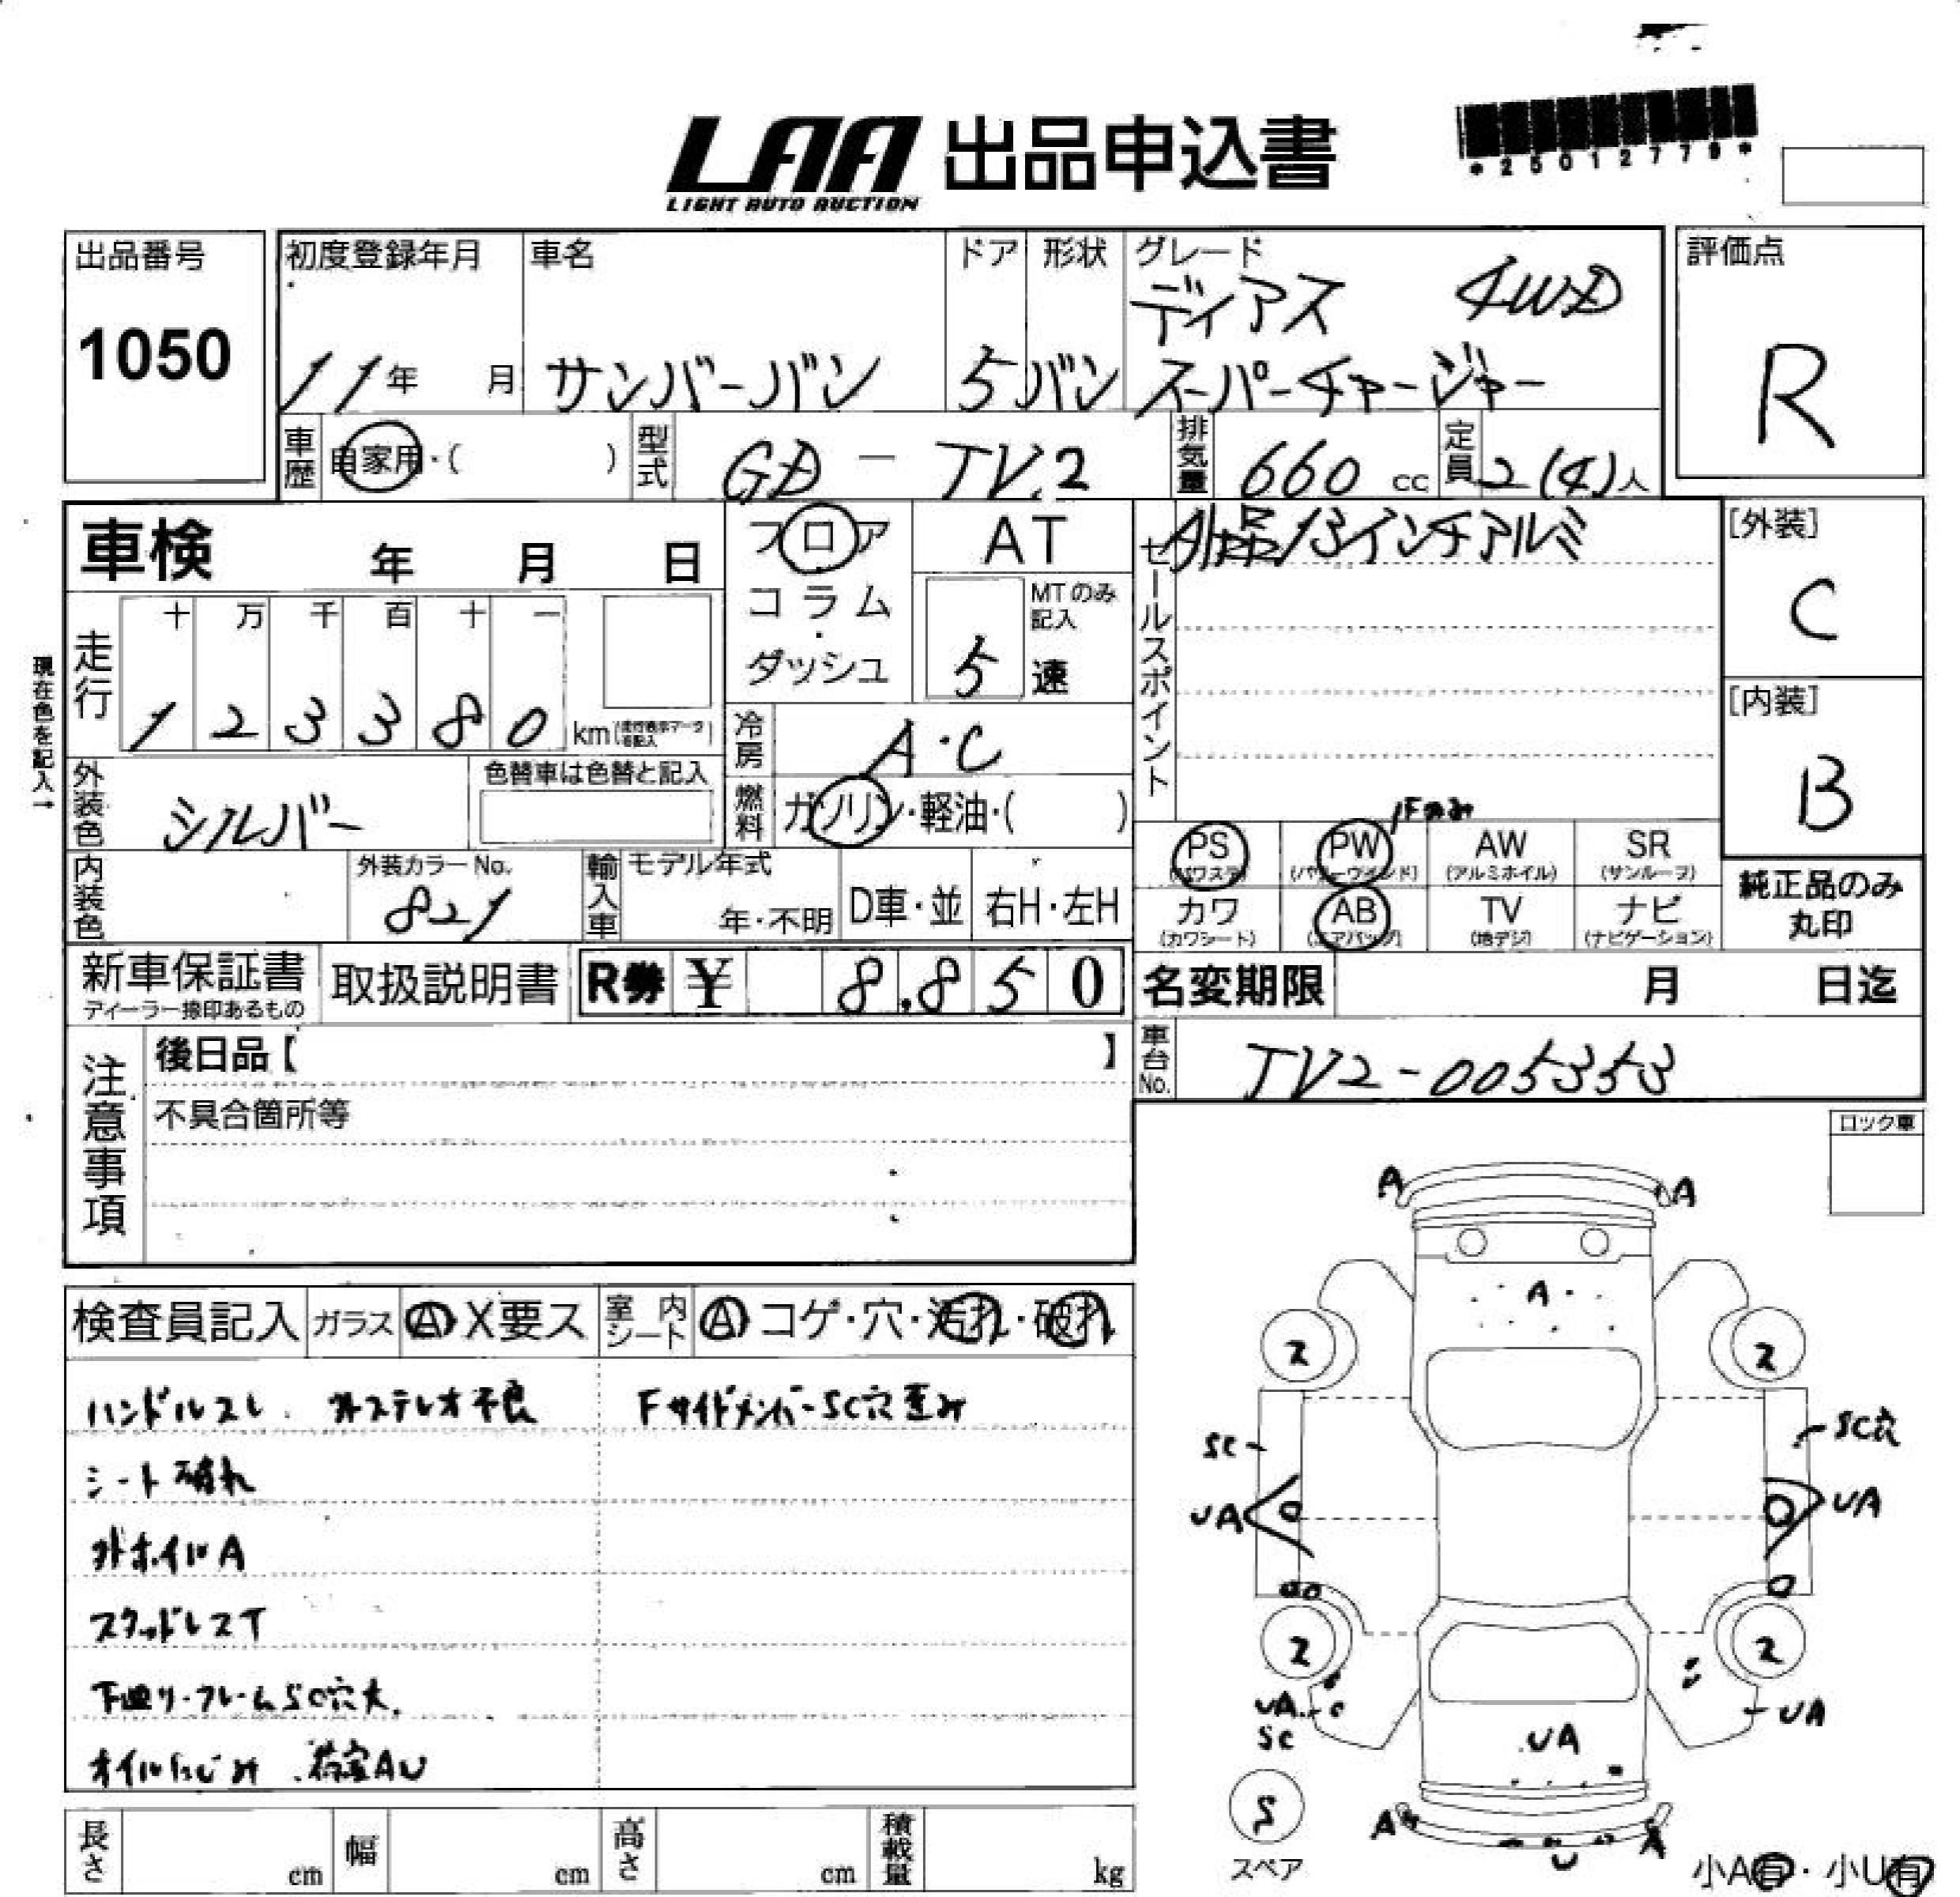 LAA 出品申込書
LIGHT AUTO AUCTION
*25012779*
出品番号
1050
初度登録年月
11年 月
車名
サンバーバン
ドア
5
形状
バン
グレード
ディアス 4WD
スーパーチャージャー
評価点
R
車歴
自家用・( )
型式
GD - TV2
排気量
660 cc
定員
2(4)人
車検 年 月 日
フロア
コラム
・
ダッシュ
AT
MTのみ記入
5 速
セールスポイント
外品13インチアルミ
[外装]
C
[内装]
B
走行
十 万 千 百 十 一
1 2 3 3 8 0 km
現在色を記入→
冷房
A・C
燃料
ガソリン・軽油・( )
外装色
シルバー
色替車は色替と記入
内装色
外装カラーNo.
821
輸入車
モデル年式
年・不明
D車・並
右H・左H
Fのみ
PS
(パワステ)
PW
(パワーウインド)
AW
(アルミホイル)
SR
(サンルーフ)
カワ
(カワシート)
AB
(エアバッグ)
TV
(地デジ)
ナビ
(ナビゲーション)
純正品のみ
丸印
新車保証書
ディーラー捺印あるもの
取扱説明書
R券 ¥ 8,850
名変期限 月 日迄
注意事項
後日品【 】
不具合箇所等
車台No.
TV2-005353
ロック車
検査員記入
ガラス
A X 要ス
室内シート
A コゲ・穴・汚れ・破れ
ハンドルスレ. 外ステレオ不良
FサイドメンバーSC穴歪み
シート破れ
外ホイルA
スタッドレスT
下廻り・フレームSC穴大.
オイルにじみ .荷室AU
長さ cm
幅 cm
高さ cm
積載量 kg
A
A
A
2
2
SC
SC穴
UA
UA
2
2
UA
SC
UA
UA
S
スペア
A
U
A
小A有・小U有